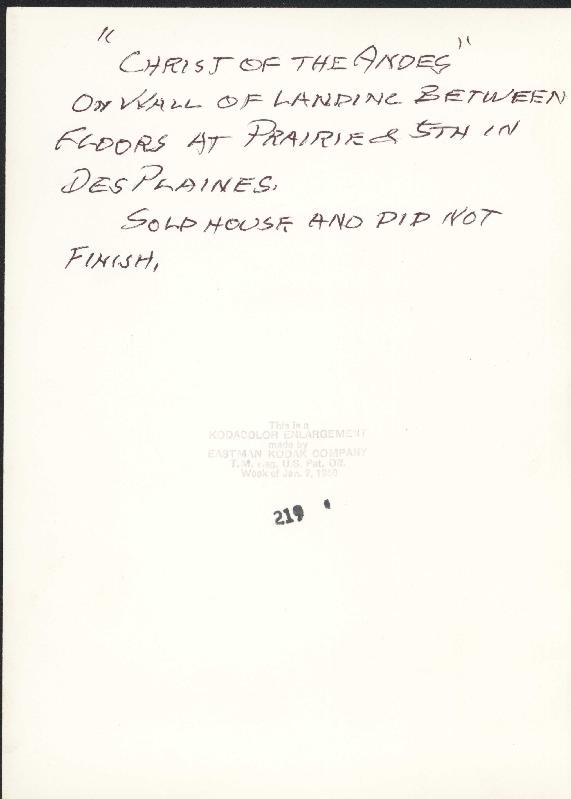 "CHRIST OF THE ANDES"
ON WALL OF LANDING BETWEEN
FLOORS AT PRAIRIE & 5TH IN
DES PLAINES.
SOLD HOUSE AND DID NOT
FINISH.
This is a
KODACOLOR ENLARGEMENT
made by
EASTMAN KODAK COMPANY
T.M. Reg. U.S. Pat. Off.
Week of Jan. 2,
219